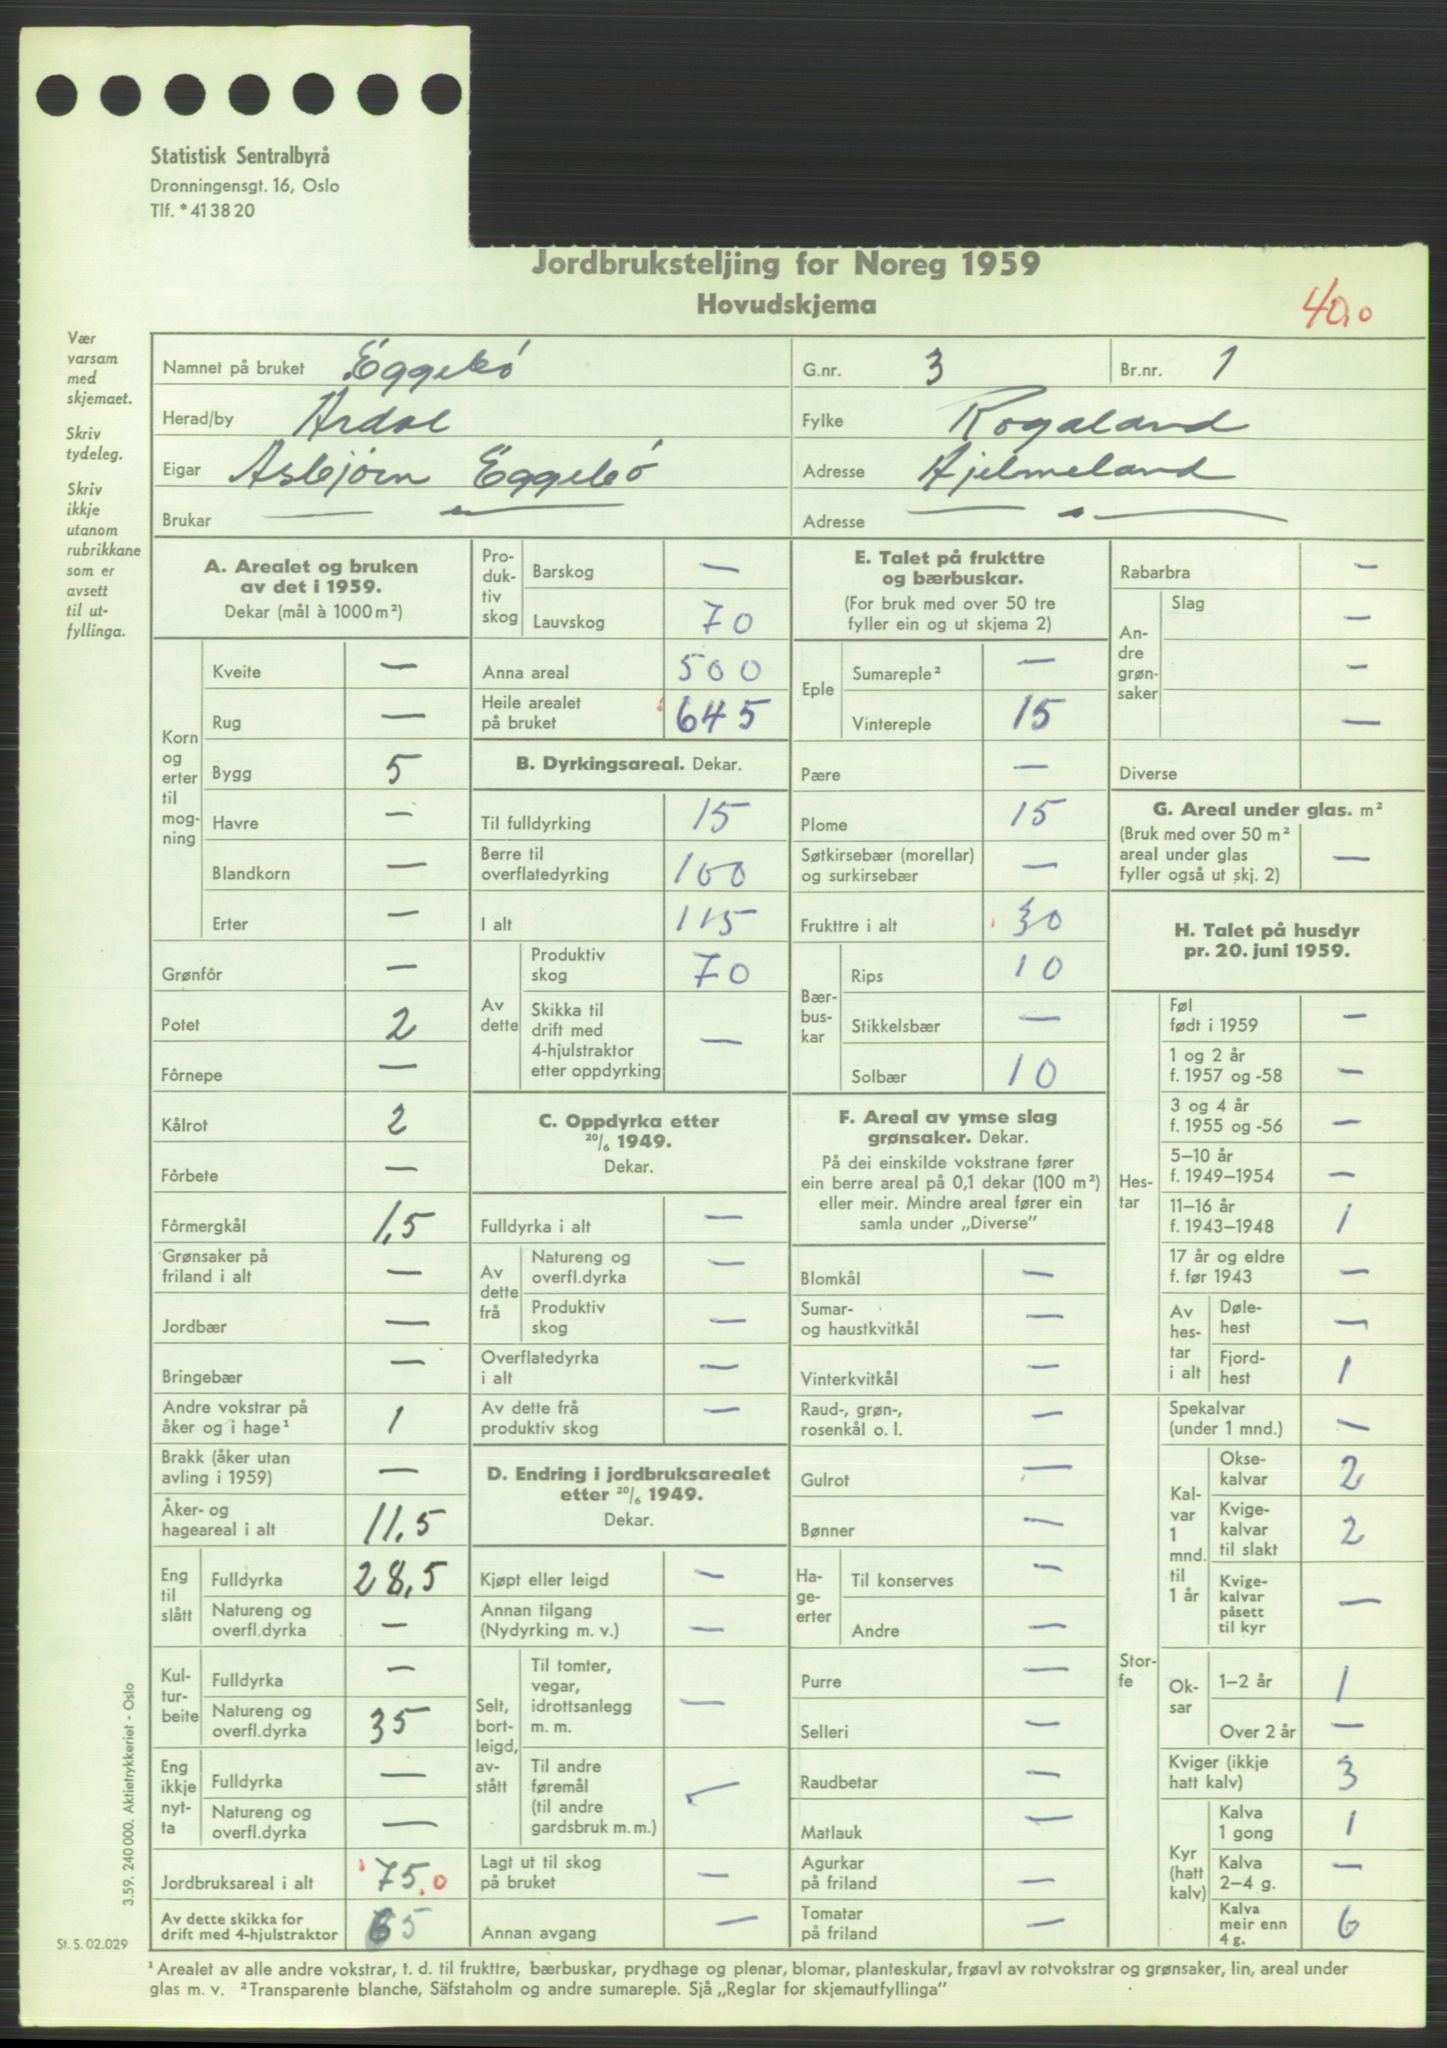 Statistisk Sentralbyrå
Dronningensgt. 16, Oslo
Tlf. *413820
Jordbruksteljing for Noreg 1959
Hovudskjema
40,0
Vær
varsam
med
skjemaet.
Skriv
tydeleg.
Skriv
ikkje
utanom
rubrikkane
som er
avsett
til ut-
fyllinga.
Namnet på bruket Eggebó G.nr. 3 Br.nr. 1
Herad/by Årdal Fylke Rogaland
Eigar Asbjørn Eggebó Adresse Hjelmeland
Brukar — " — Adresse — " —
A. Arealet og bruken
av det i 1959.
Dekar (mål à 1000 m²)
Korn
og
erter
til
mog-
ning
Kveite —
Rug —
Bygg 5
Havre —
Blandkorn —
Erter —
Grønfôr —
Potet 2
Fôrnepe —
Kålrot 2
Fôrbete —
Fôrmergkål 1,5
Grønsaker på
friland i alt —
Jordbær —
Bringebær —
Andre vokstrar på
åker og i hage¹ 1
Brakk (åker utan
avling i 1959) —
Åker- og
hageareal i alt 11,5
Eng
til
slått
Fulldyrka 28,5
Natureng og
overfl.dyrka —
Kul-
tur-
beite
Fulldyrka —
Natureng og
overfl.dyrka 35
Eng
ikkje
nyt-
ta
Fulldyrka —
Natureng og
overfl.dyrka —
Jordbruksareal i alt 75,0
Av dette skikka for
drift med 4-hjulstraktor 65
Pro-
duk-
tiv
skog
Barskog —
Lauvskog 70
Anna areal 500
Heile arealet
på bruket 645
B. Dyrkingsareal. Dekar.
Til fulldyrking 15
Berre til
overflatedyrking 100
I alt 115
Av
dette
Produktiv
skog 70
Skikka til
drift med
4-hjulstraktor
etter oppdyrking —
C. Oppdyrka etter
20/6 1949.
Dekar.
Fulldyrka i alt —
Av
dette
frå
Natureng og
overfl.dyrka —
Produktiv
skog —
Overflatedyrka
i alt —
Av dette frå
produktiv skog —
D. Endring i jordbruksarealet
etter 20/6 1949.
Dekar.
Kjøpt eller leigd —
Annan tilgang
(Nydyrking m. v.) —
Selt,
bort-
leigd,
av-
stått
Til tomter,
vegar,
idrottsanlegg
m. m. —
Til andre
føremål
(til andre
gardsbruk m. m.) —
Lagt ut til skog
på bruket —
Annan avgang —
E. Talet på frukttre
og bærbuskar.
(For bruk med over 50 tre
fyller ein og ut skjema 2)
Eple
Sumareple² —
Vintereple 15
Pære —
Plome 15
Søtkirsebær (morellar)
og surkirsebær —
Frukttre i alt 30
Bær-
bus-
kar
Rips 10
Stikkelsbær —
Solbær 10
F. Areal av ymse slag
grønsaker. Dekar.
På dei einskilde vokstrane fører
ein berre areal på 0,1 dekar (100 m²)
eller meir. Mindre areal fører ein
samla under „Diverse”
Blomkål —
Sumar-
og haustkvitkål —
Vinterkvitkål —
Raud-, grøn-,
rosenkål o. l. —
Gulrot —
Bønner —
Ha-
ge-
erter
Til konserves —
Andre —
Purre —
Selleri —
Raudbetar —
Matlauk —
Agurkar
på friland —
Tomatar
på friland —
Rabarbra —
An-
dre
grøn-
saker
Slag
—
—
—
Diverse
G. Areal under glas. m²
(Bruk med over 50 m²
areal under glas
fyller også ut skj. 2) —
H. Talet på husdyr
pr. 20. juni 1959.
Hes-
tar
Føl
født i 1959 —
1 og 2 år
f. 1957 og -58 —
3 og 4 år
f. 1955 og -56 —
5–10 år
f. 1949–1954 —
11–16 år
f. 1943–1948 1
17 år og eldre
f. før 1943 —
Av
hes-
tar
i alt
Døle-
hest —
Fjord-
hest 1
Stor-
fe
Spekalvar
(under 1 mnd.) —
Kal-
var
1
mnd.
til
1 år
Okse-
kalvar 2
Kvige-
kalvar
til slakt 2
Kvige-
kalvar
påsett
til kyr —
Ok-
sar
1–2 år 1
Over 2 år —
Kviger (ikkje
hatt kalv) 3
Kyr
(hatt
kalv)
Kalva
1 gong 1
Kalva
2–4 g. —
Kalva
meir enn
4 g. 6
3.59. 240 000. Aktietrykkeriet - Oslo
St. S. 02.029
¹ Arealet av alle andre vokstrar, t. d. til frukttre, bærbuskar, prydhage og plenar, blomar, planteskular, frøavl av rotvokstrar og grønsaker, lin, areal under
glas m. v. ² Transparente blanche, Säfstaholm og andre sumareple. Sjå „Reglar for skjemautfyllinga”